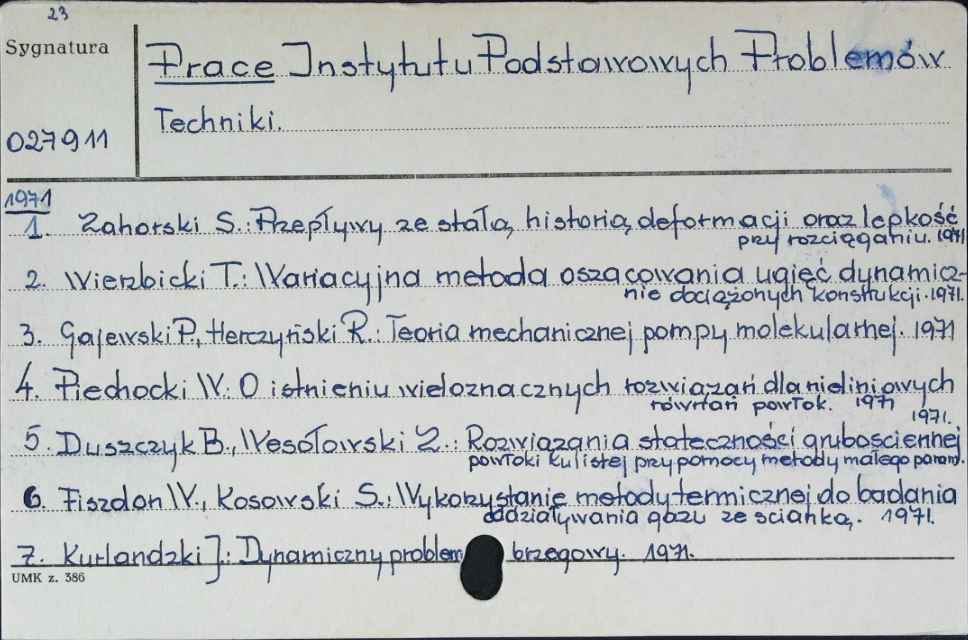 23
Sygnatura
027911
Prace Instytutu Podstawowych Problemów
Techniki.
1971
1. Zahorski S.: Przepływy ze stałą historią deformacji oraz lepkość
przy rozciąganiu. 1971
2. Wierzbicki T.: Wariacyjna metoda oszacowania ugięć dynamicz-
nie obciążonych konstrukcji. 1971.
3. Gajewski P., Herczyński R.: Teoria mechanicznej pompy molekularnej. 1971
4. Piechocki W.: O istnieniu wieloznacznych rozwiązań dla nieliniowych
równań powłok. 1971
1971.
5. Duszczyk B., Wesołowski Z.: Rozwiązania stateczności grubościennej
powłoki kulistej przy pomocy metody małego param.
6. Fiszdon W., Kosowski S.: Wykorzystanie metody termicznej do badania
oddziaływania gazu ze ścianką. 1971.
7. Kurlandzki J.: Dynamiczny problem brzegowy. 1971.
UMK z. 386